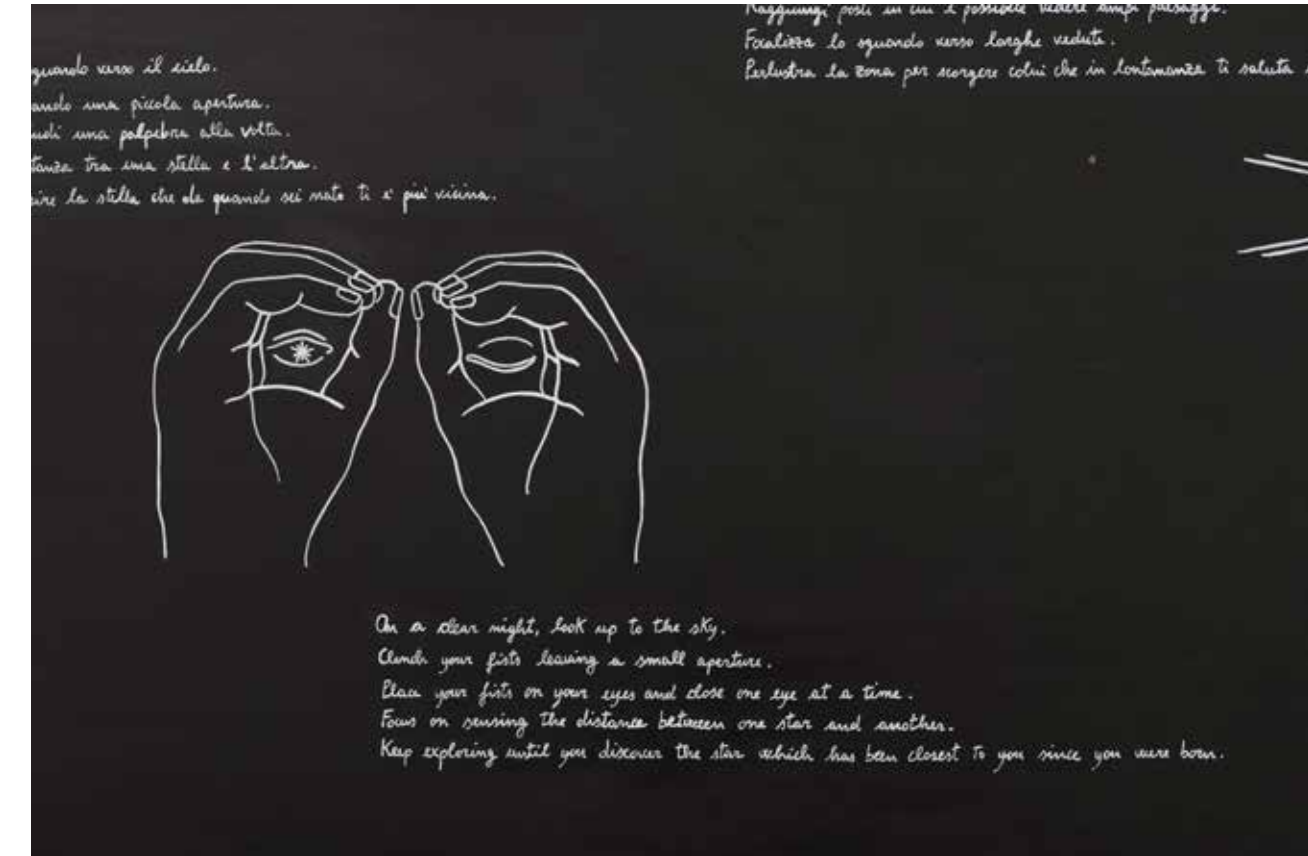 guardo verso il cielo.
ando una piccola apertura.
udi una palpebra alla volta.
tanza tra una stella e l'altra.
rire la stella che da quando sei nato ti e' piu' vicina.
Raggiungi posti in cui è possibile vedere ampi paesaggi.
Focalizza lo sguardo verso larghe vedute.
Perlustra la zona per scorgere colui che in lontananza ti saluta
On a clear night, look up to the sky.
Clench your fists leaving a small aperture.
Place your fists on your eyes and close one eye at a time.
Focus on sensing the distance between one star and another.
Keep exploring until you discover the star which has been closest to you since you were born.